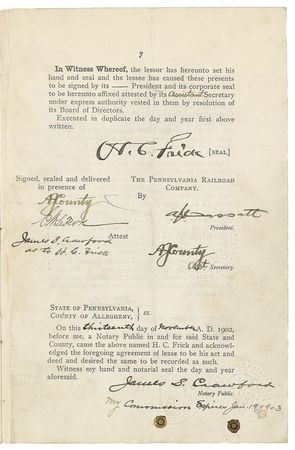 7
In Witness Whereof, the lessor has hereunto set his
hand and seal and the lessee has caused these presents
to be signed by its —— President and its corporate seal
to be hereunto affixed attested by its Assistant Secretary
under express authority vested in them by resolution of
its Board of Directors.
Executed in duplicate the day and year first above
written.
H. C. Frick [SEAL]
Signed, sealed and delivered
in presence of
THE PENNSYLVANIA RAILROAD
COMPANY.
By
A J County
President.
James S. Crawford
as to H. C. Frick
Attest
A J County
Asst. Secretary.
STATE OF PENNSYLVANIA,
COUNTY OF ALLEGHENY,
ss.
On this thirteenth day of November A. D. 1902,
before me, a Notary Public in and for said State and
County, came the above named H. C. Frick and acknowl-
edged the foregoing agreement of lease to be his act and
deed and desired the same to be recorded as such.
Witness my hand and notarial seal the day and year
aforesaid.
James S. Crawford
Notary Public.
My Commission Expires Jan. 19, 1903